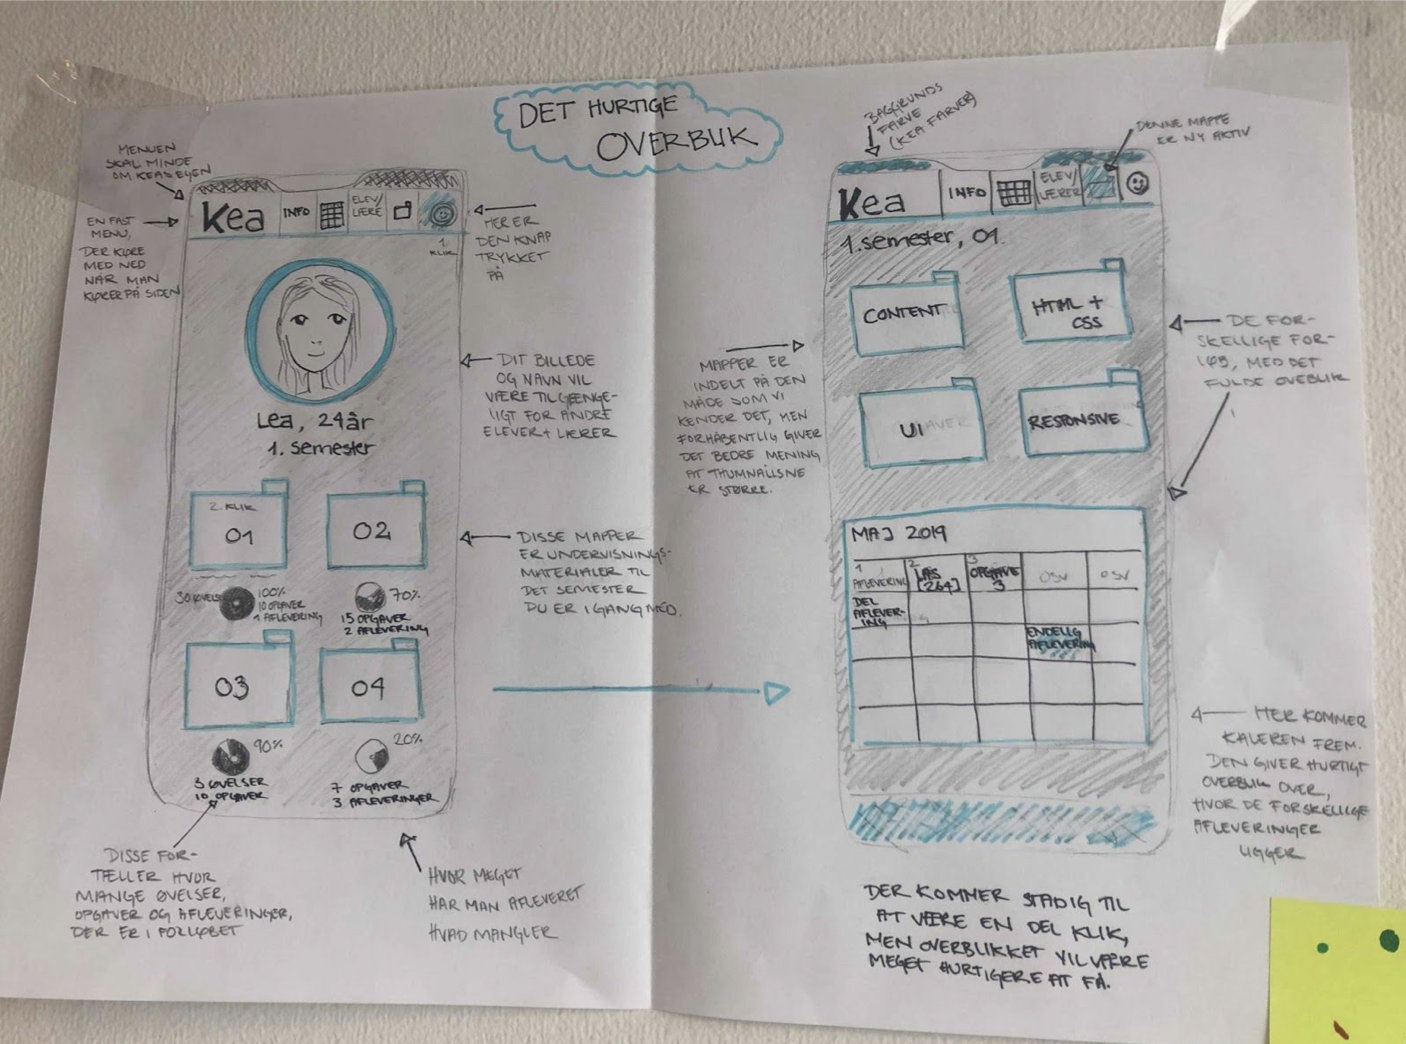 DET HURTIGE
OVERBLIK
MENUEN
SKAL MINDE
OM KEAS EGEN
EN FAST
MENU,
DER KØRE
MED NED
NÅR MAN
KØRER PÅ SIDEN
Kea
INFO
ELEV/
LÆRE
1.
KLIK
HER ER
DEN KNAP
TRYKKET
PÅ
Lea, 24 år
1. semester
DIT BILLEDE
OG NAVN VIL
VÆRE TILGÆNGE-
LIGT FOR ANDRE
ELEVER + LÆRER
2. KLIK
01
02
30 ØVELSE
100%
10 OPGAVER
1 AFLEVERING
70%
15 OPGAVER
2 AFLEVERING
DISSE MAPPER
ER UNDERVISNINGS-
MATERIALER TIL
DET SEMESTER
DU ER I GANG MED.
03
04
90%
5 ØVELSER
10 OPGAVER
20%
7 OPGAVER
3 AFLEVERINGER
DISSE FOR-
TÆLLER HVOR
MANGE ØVELSER,
OPGAVER OG AFLEVERINGER,
DER ER I FORLØBET
HVOR MEGET
HAR MAN AFLEVERET
HVAD MANGLER
BAGGRUNDS
FARVE
(KEA FARVER)
DENNE MAPPE
ER NY AKTIV
Kea
INFO
ELEV/
LÆRER
1. semester, 01.
CONTENT
HTML +
CSS
UI
RESPONSIVE
MAPPER ER
INDELT PÅ DEN
MÅDE SOM VI
KENDER DET, MEN
FORHÅBENTLIG GIVER
DET BEDRE MENING
AT THUMNAILSNE
ER STØRRE.
DE FOR-
SKELLIGE FOR-
LØB, MED DET
FULDE OVEBLIK
MAJ 2019
1 AFLEVERING
2 LÆS [264]
3 OPGAVE 3
OSV
OSV
DEL
AFLEVER-
ING
ENDELIG
AFLEVERING
HER KOMMER
KALEREN FREM.
DEN GIVER HURTIGT
OVERBLIK OVER,
HVOR DE FORSKELLIGE
AFLEVERINGER
LIGGER
DER KOMMER STADIG TIL
AT VÆRE EN DEL KLIK,
MEN OVERBLIKKET VIL VÆRE
MEGET HURTIGERE AT FÅ.